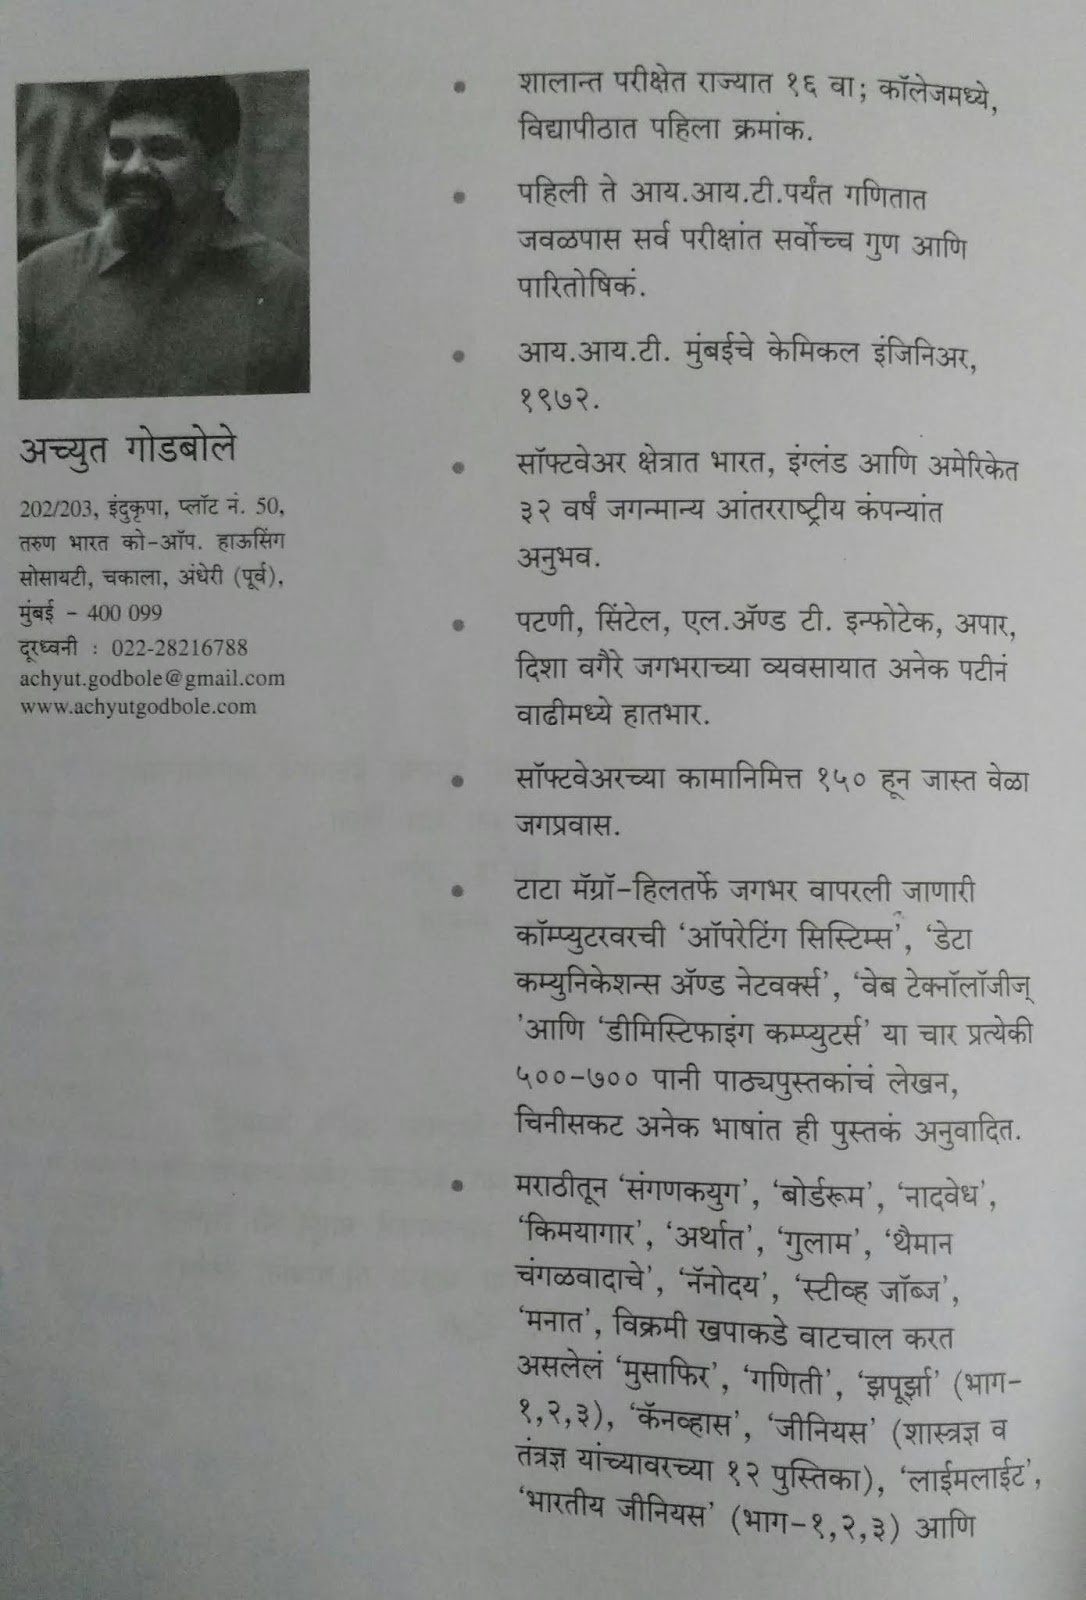 अच्युत गोडबोले
202/203, इंदुकृपा, प्लॉट नं. 50,
तरुण भारत को-ऑप. हाऊसिंग
सोसायटी, चकाला, अंधेरी (पूर्व),
मुंबई - 400 099
दूरध्वनी : 022-28216788
achyut.godbole@gmail.com
www.achyutgodbole.com
• शालान्त परीक्षेत राज्यात १६ वा; कॉलेजमध्ये,
विद्यापीठात पहिला क्रमांक.
• पहिली ते आय.आय.टी.पर्यंत गणितात
जवळपास सर्व परीक्षांत सर्वोच्च गुण आणि
पारितोषिकं.
• आय.आय.टी. मुंबईचे केमिकल इंजिनिअर,
१९७२.
• सॉफ्टवेअर क्षेत्रात भारत, इंग्लंड आणि अमेरिकेत
३२ वर्षं जगन्मान्य आंतरराष्ट्रीय कंपन्यांत
अनुभव.
• पटणी, सिंटेल, एल.ॲण्ड टी. इन्फोटेक, अपार,
दिशा वगैरे जगभराच्या व्यवसायात अनेक पटीनं
वाढीमध्ये हातभार.
• सॉफ्टवेअरच्या कामानिमित्त १५० हून जास्त वेळा
जगप्रवास.
• टाटा मॅग्रॉ-हिलतर्फे जगभर वापरली जाणारी
कॉम्प्युटरवरची ‘ऑपरेटिंग सिस्टिम्स’, ‘डेटा
कम्युनिकेशन्स ॲण्ड नेटवर्क्स’, ‘वेब टेक्नॉलॉजीज्
’आणि ‘डीमिस्टिफाइंग कम्प्युटर्स’ या चार प्रत्येकी
५००-७०० पानी पाठ्यपुस्तकांचं लेखन,
चिनीसकट अनेक भाषांत ही पुस्तकं अनुवादित.
• मराठीतून ‘संगणकयुग’, ‘बोर्डरूम’, ‘नादवेध’,
‘किमयागार’, ‘अर्थात’, ‘गुलाम’, ‘थैमान
चंगळवादाचे’, ‘नॅनोदय’, ‘स्टीव्ह जॉब्ज’,
‘मनात’, विक्रमी खपाकडे वाटचाल करत
असलेलं ‘मुसाफिर’, ‘गणिती’, ‘झपूर्झा’ (भाग-
१,२,३), ‘कॅनव्हास’, ‘जीनियस’ (शास्त्रज्ञ व
तंत्रज्ञ यांच्यावरच्या १२ पुस्तिका), ‘लाईमलाईट’,
‘भारतीय जीनियस’ (भाग-१,२,३) आणि